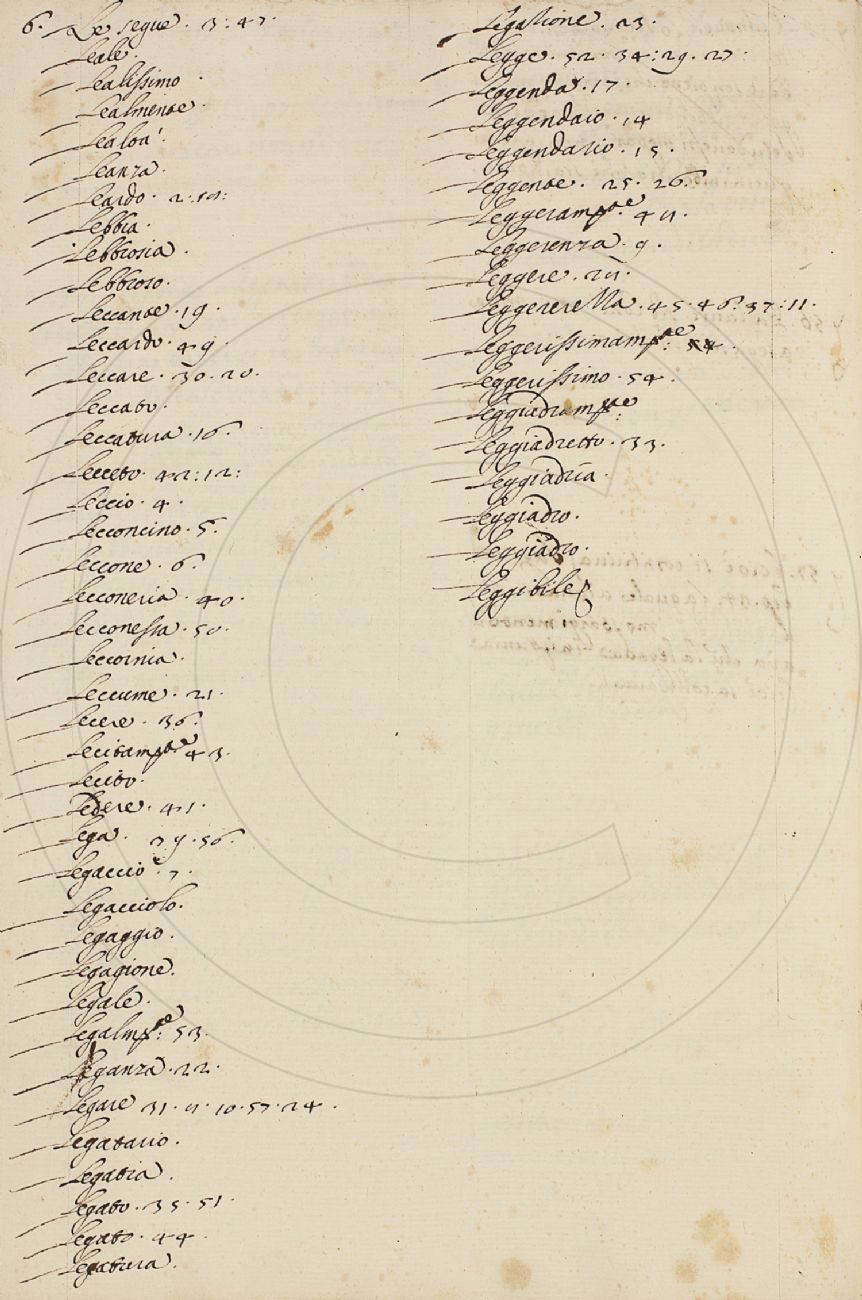 6. Le segue. 3:47.
Leale.
Lealissimo.
Lealmente.
Lealtà.
Leanza.
Leardo. 2:
Lebbra.
Lebbrosia.
Lebbroso.
Leccante. 19.
Leccardo. 49.
Leccare. 30. 20.
Leccato.
Leccatura. 16.
Lecceto. 42:12:
Leccio. 4.
Lecconcino. 5.
Leccone. 6.
Lecconeria. 40.
Lecconessa. 50.
Leccornia.
Leccume. 21.
Lecere. 36.
Lecitamte. 43.
Lecito.
Ledere. 41.
Lega. 39. 56.
Legaccio. 7.
Legacciolo.
Legaggio.
Legagione.
Legale.
Legalmte: 53.
Leganza. 22.
Legare 31. 10. 57. 24.
Legatario.
Legatia.
Legato. 35. 51.
Legato. 44.
Legatura.
Legazione. 23.
Legge. 52. 34:29. 27:
Leggenda. 17.
Leggendaio. 14
Leggendario. 15.
Leggente. 25. 26.
Leggeramte. 4
Leggerenza. 9.
Leggere.
Leggererella. 45. 46. 37:11.
Leggerissimamte: 54.
Leggerissimo. 54.
Leggiadramte:
Leggiadretto. 33.
Leggiadria.
Leggiadro.
Leggiadro.
Leggibile